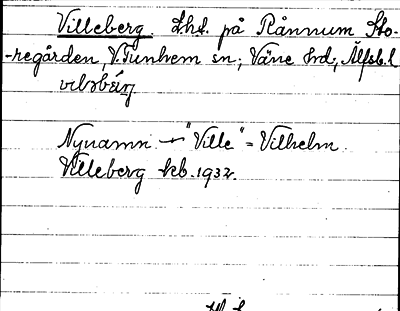 Villeberg. Lht. på Rånnum Sto-
regården, V.Tunhem sn; Väne hd; Älfsb.l
Nynamn. "Ville" = Vilhelm.
Villeberg kb. 1932.